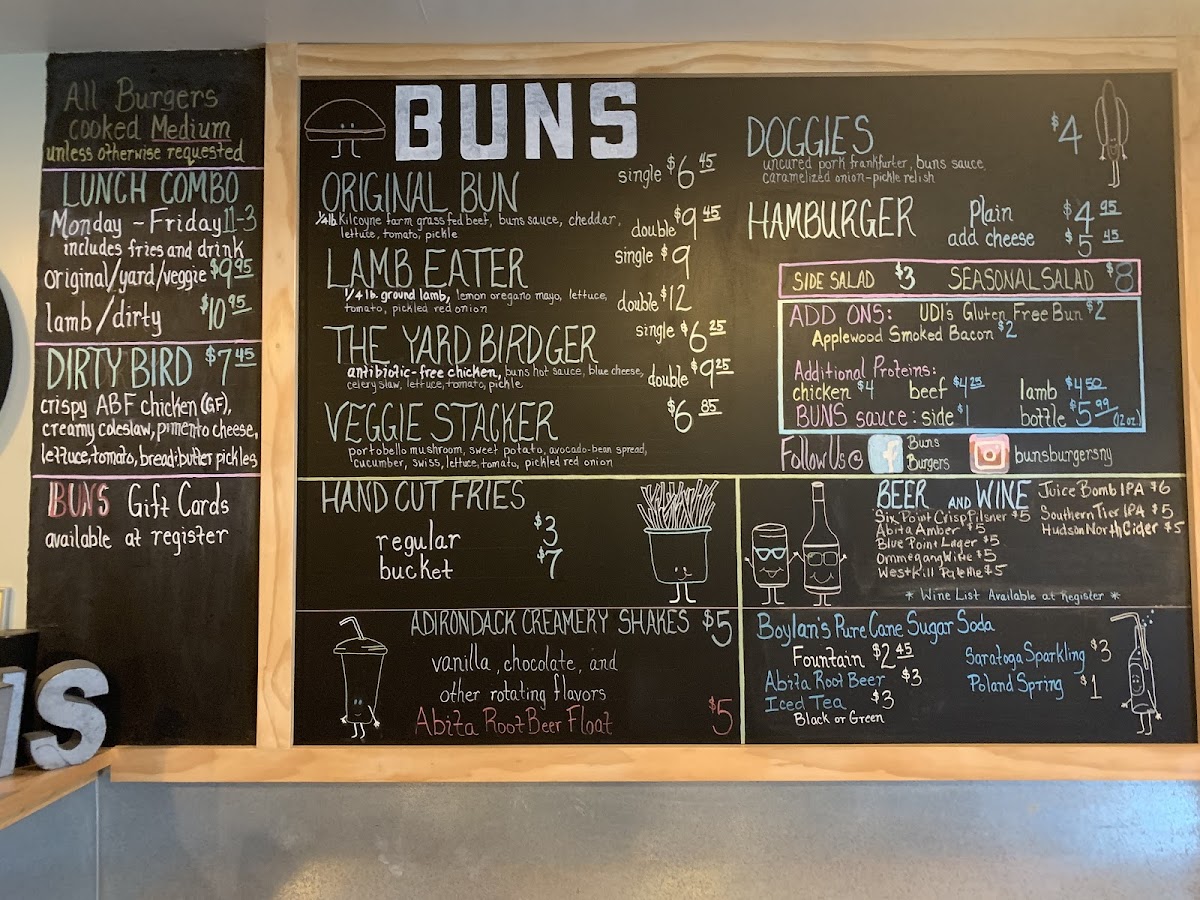 All Burgers
cooked Medium
unless otherwise requested
LUNCH COMBO
Monday - Friday 11-3
includes fries and drink
original/yard/veggie $9 95
lamb/dirty $10 95
DIRTY BIRD $7 45
crispy ABF chicken (GF),
creamy coleslaw, pimento cheese,
lettuce, tomato, bread+butter pickles
BUNS Gift Cards
available at register
BUNS
ORIGINAL BUN single $6 45
1/4 lb Kilcoyne farm grass fed beef, buns sauce, cheddar,
lettuce, tomato, pickle double $9 45
LAMB EATER single $9
1/4 lb. ground lamb, lemon oregano mayo, lettuce,
tomato, pickled red onion double $12
THE YARD BIRDGER single $6 25
antibiotic-free chicken, buns hot sauce, blue cheese,
celery slaw, lettuce, tomato, pickle double $9 25
VEGGIE STACKER $6 85
portobello mushroom, sweet potato, avocado-bean spread,
cucumber, swiss, lettuce, tomato, pickled red onion
DOGGIES $4
uncured pork frankfurter, buns sauce,
caramelized onion-pickle relish
HAMBURGER Plain $4 95
add cheese $5 45
SIDE SALAD $3 SEASONAL SALAD $8
ADD ONS: UDI's Gluten Free Bun $2
Applewood Smoked Bacon $2
Additional Proteins:
chicken $4 beef $4 25 lamb $4 50
BUNS sauce: side $1 bottle $5 99 (12oz.)
Follow Us @ f Buns Burgers bunsburgersny
HAND CUT FRIES
regular $3
bucket $7
BEER AND WINE
Six Point Crisp Pilsner $5
Abita Amber $5
Blue Point Lager $5
Ommegang Witte $5
Westkill Pale Ale $5
Juice Bomb IPA $6
Southern Tier IPA $5
Hudson North Cider $5
* Wine List Available at Register *
ADIRONDACK CREAMERY SHAKES $5
vanilla, chocolate, and
other rotating flavors
Abita Root Beer Float $5
Boylan's Pure Cane Sugar Soda
Fountain $2 45
Abita Root Beer $3
Iced Tea $3
Black or Green
Saratoga Sparkling $3
Poland Spring $1
S